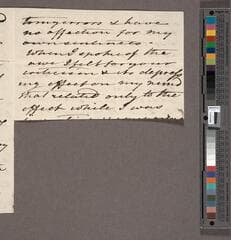 to my errors & have
no affection for my
own sentences.
When I spoke of the
awe I felt for your
criticism & its depress
ing effect on my mind
that related only to the
effect while I was